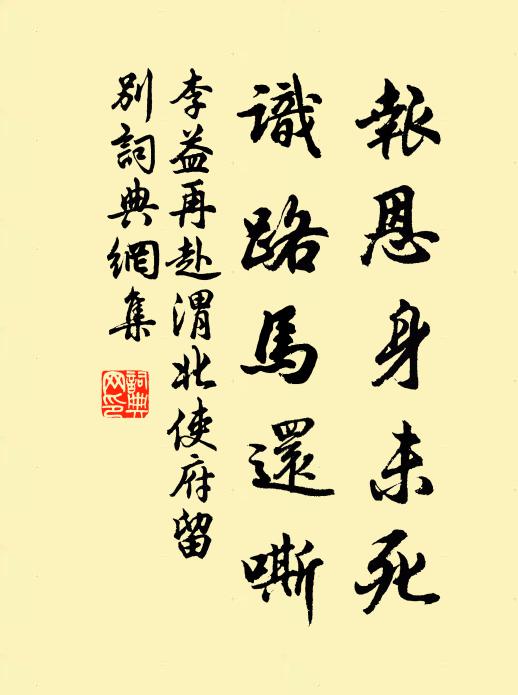 報恩身未死
識路馬還嘶
李益再赴渭北使府留
別詞典網集
詞典
网印